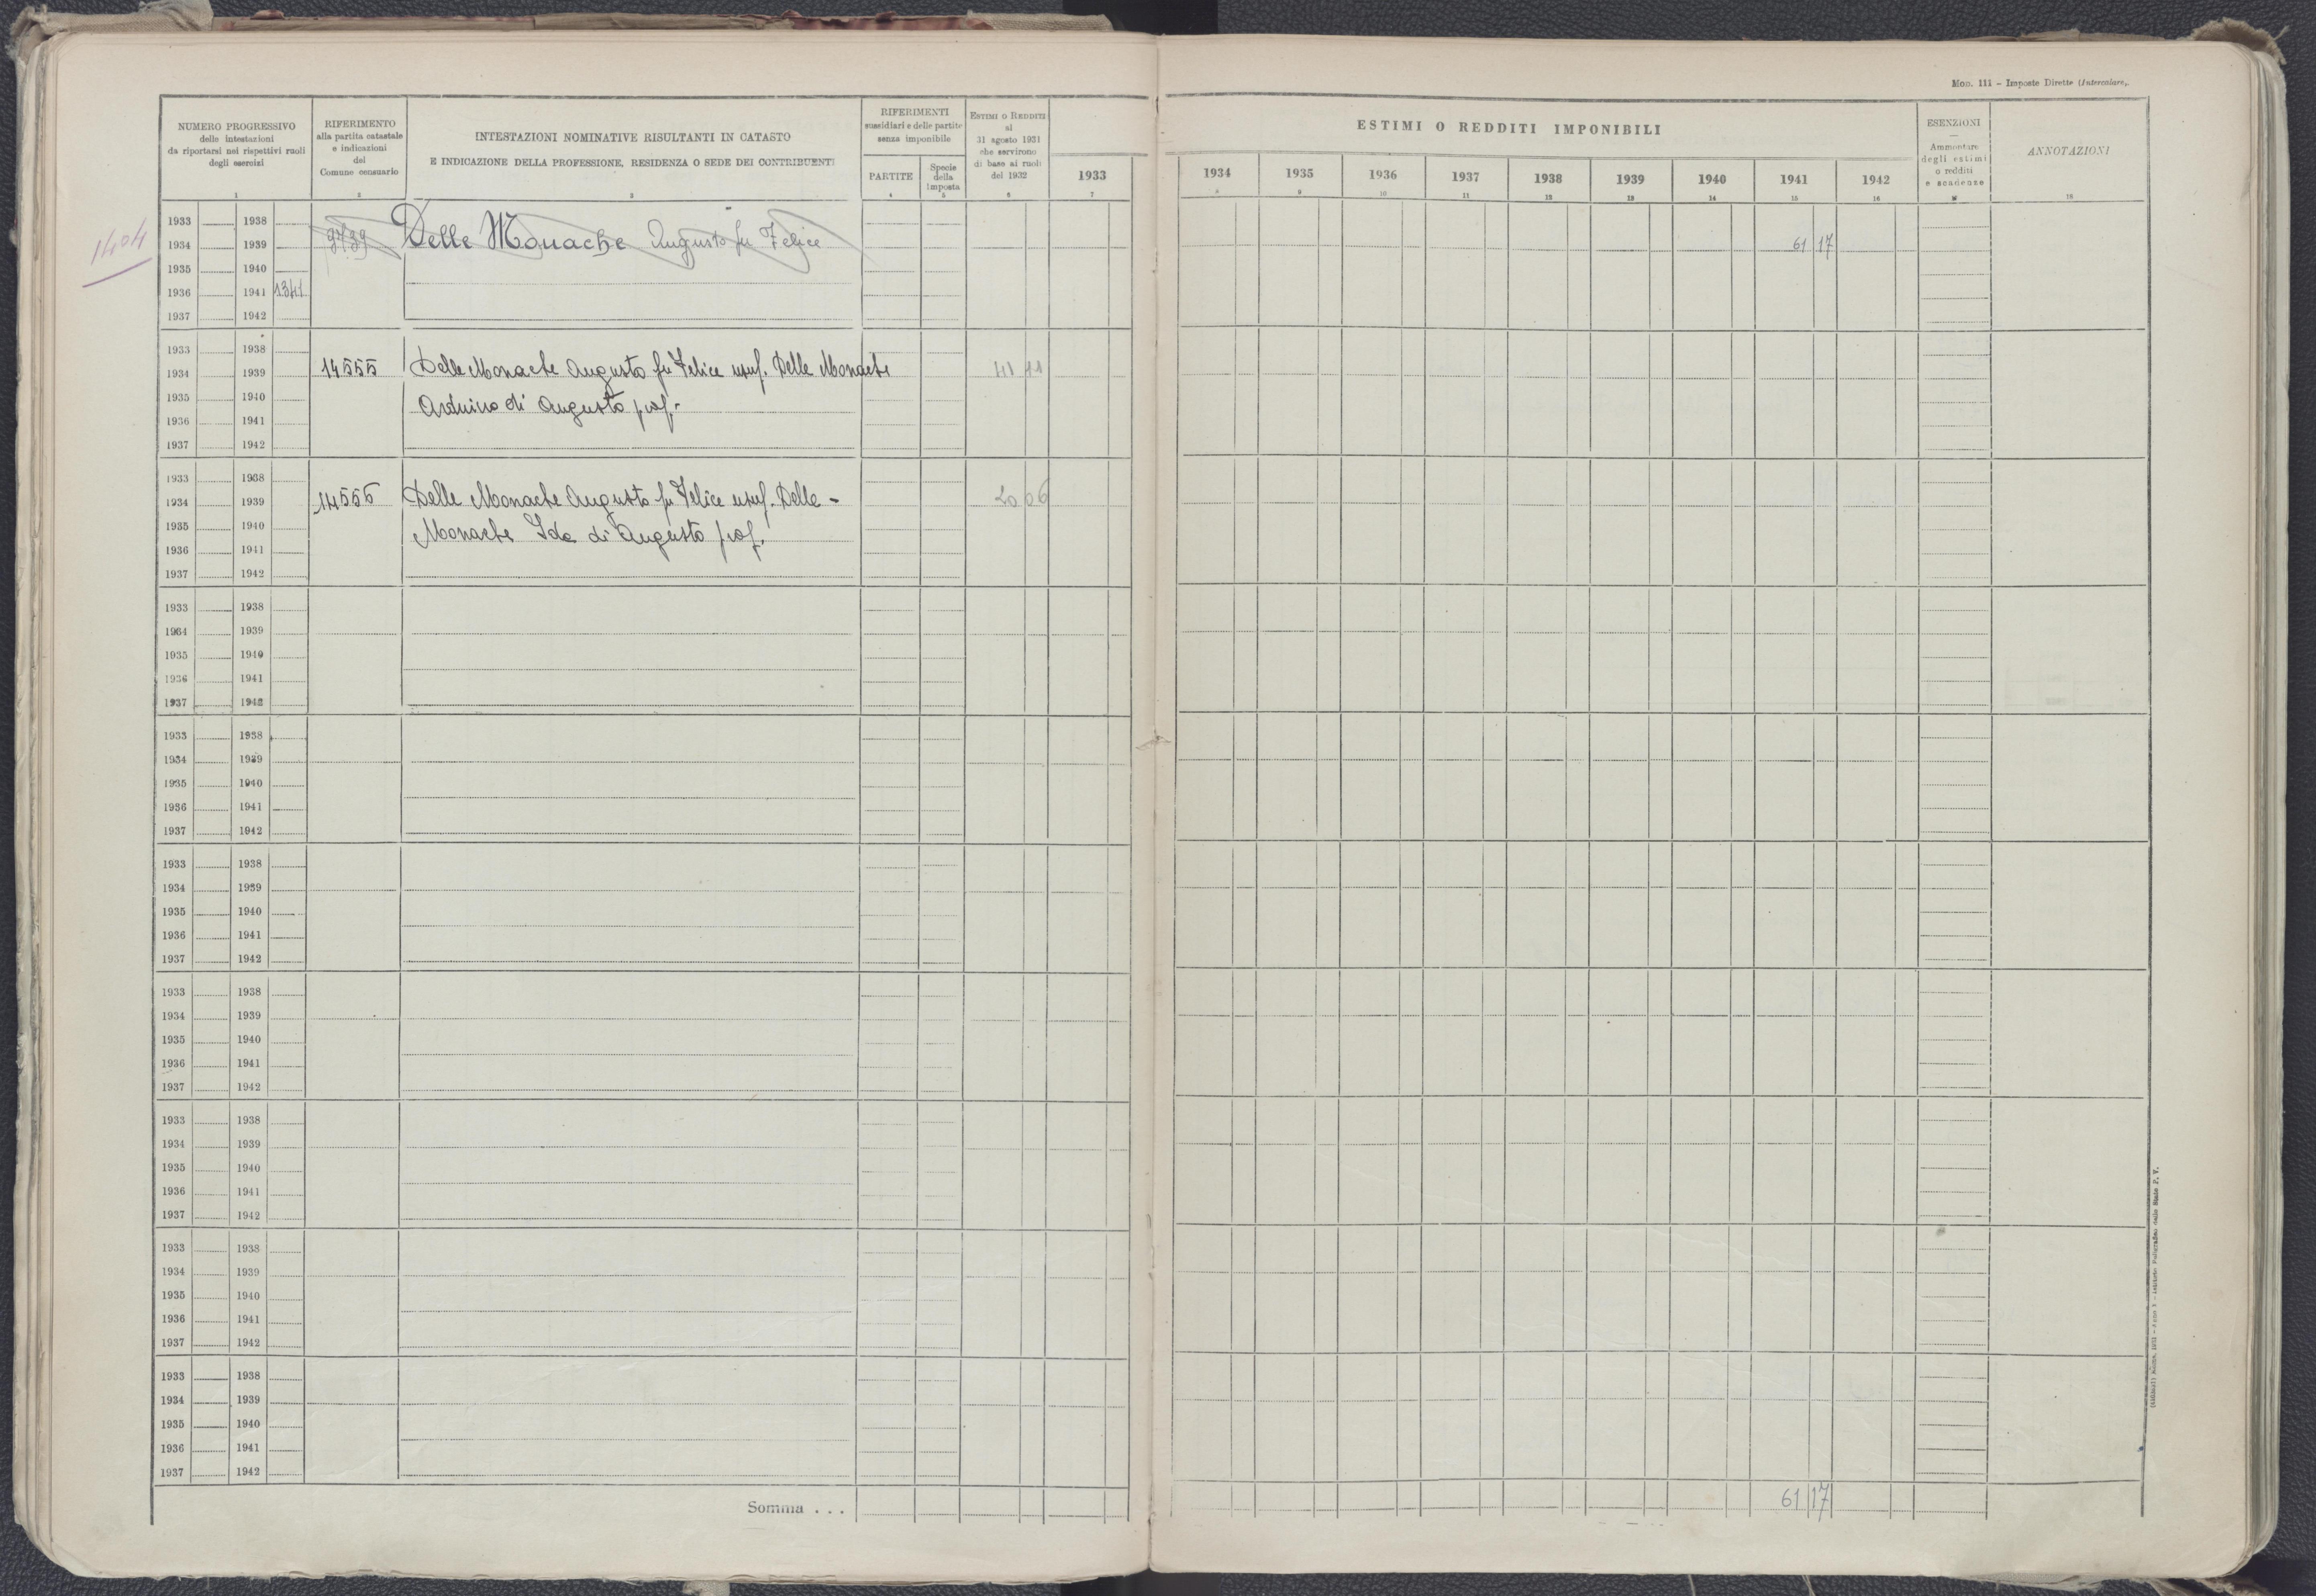 Mod. 111 – Imposte Dirette (Intercalare).
NUMERO PROGRESSIVO
delle intestazioni
da riportarsi nei rispettivi ruoli
degli esercizi
1
RIFERIMENTO
alla partita catastale
e indicazioni
del
Comune censuario
2
INTESTAZIONI NOMINATIVE RISULTANTI IN CATASTO
E INDICAZIONE DELLA PROFESSIONE, RESIDENZA O SEDE DEI CONTRIBUENTI
3
RIFERIMENTI
sussidiari e delle partite
senza imponibile
PARTITE
4
Specie
della
imposta
5
ESTIMI O REDDITI
al
31 agosto 1931
che servirono
di base ai ruoli
del 1932
6
1933
7
ESTIMI O REDDITI IMPONIBILI
1934 1935 1936 1937 1938 1939 1940 1941 1942
8 9 10 11 12 13 14 15 16
ESENZIONI
—
Ammontare
degli estimi
o redditi
e scadenze
ANNOTAZIONI
18
1404
1933 1938
1934 1939 9739 Delle Monache Augusto fu Felice 61 17
1935 1940
1936 1941 1341
1937 1942
1933 1938
1934 1939 14555 Delle Monache Augusto fu Felice usuf. Delle Monache 41 11
1935 1940 Arduino di Augusto prop.
1936 1941
1937 1942
1933 1938
1934 1939 14556 Delle Monache Augusto fu Felice usuf. Delle - 20 06
1935 1940 Monache Ida di Augusto prop.
1936 1941
1937 1942
1933 1938
1934 1939
1935 1940
1936 1941
1937 1942
1933 1938
1934 1939
1935 1940
1936 1941
1937 1942
1933 1938
1934 1939
1935 1940
1936 1941
1937 1942
1933 1938
1934 1939
1935 1940
1936 1941
1937 1942
1933 1938
1934 1939
1935 1940
1936 1941
1937 1942
1933 1938
1934 1939
1935 1940
1936 1941
1937 1942
1933 1938
1934 1939
1935 1940
1936 1941
1937 1942
Somma . . . 61 17
Roma, 1931 – Anno X – Istituto Poligrafico dello Stato P. V.